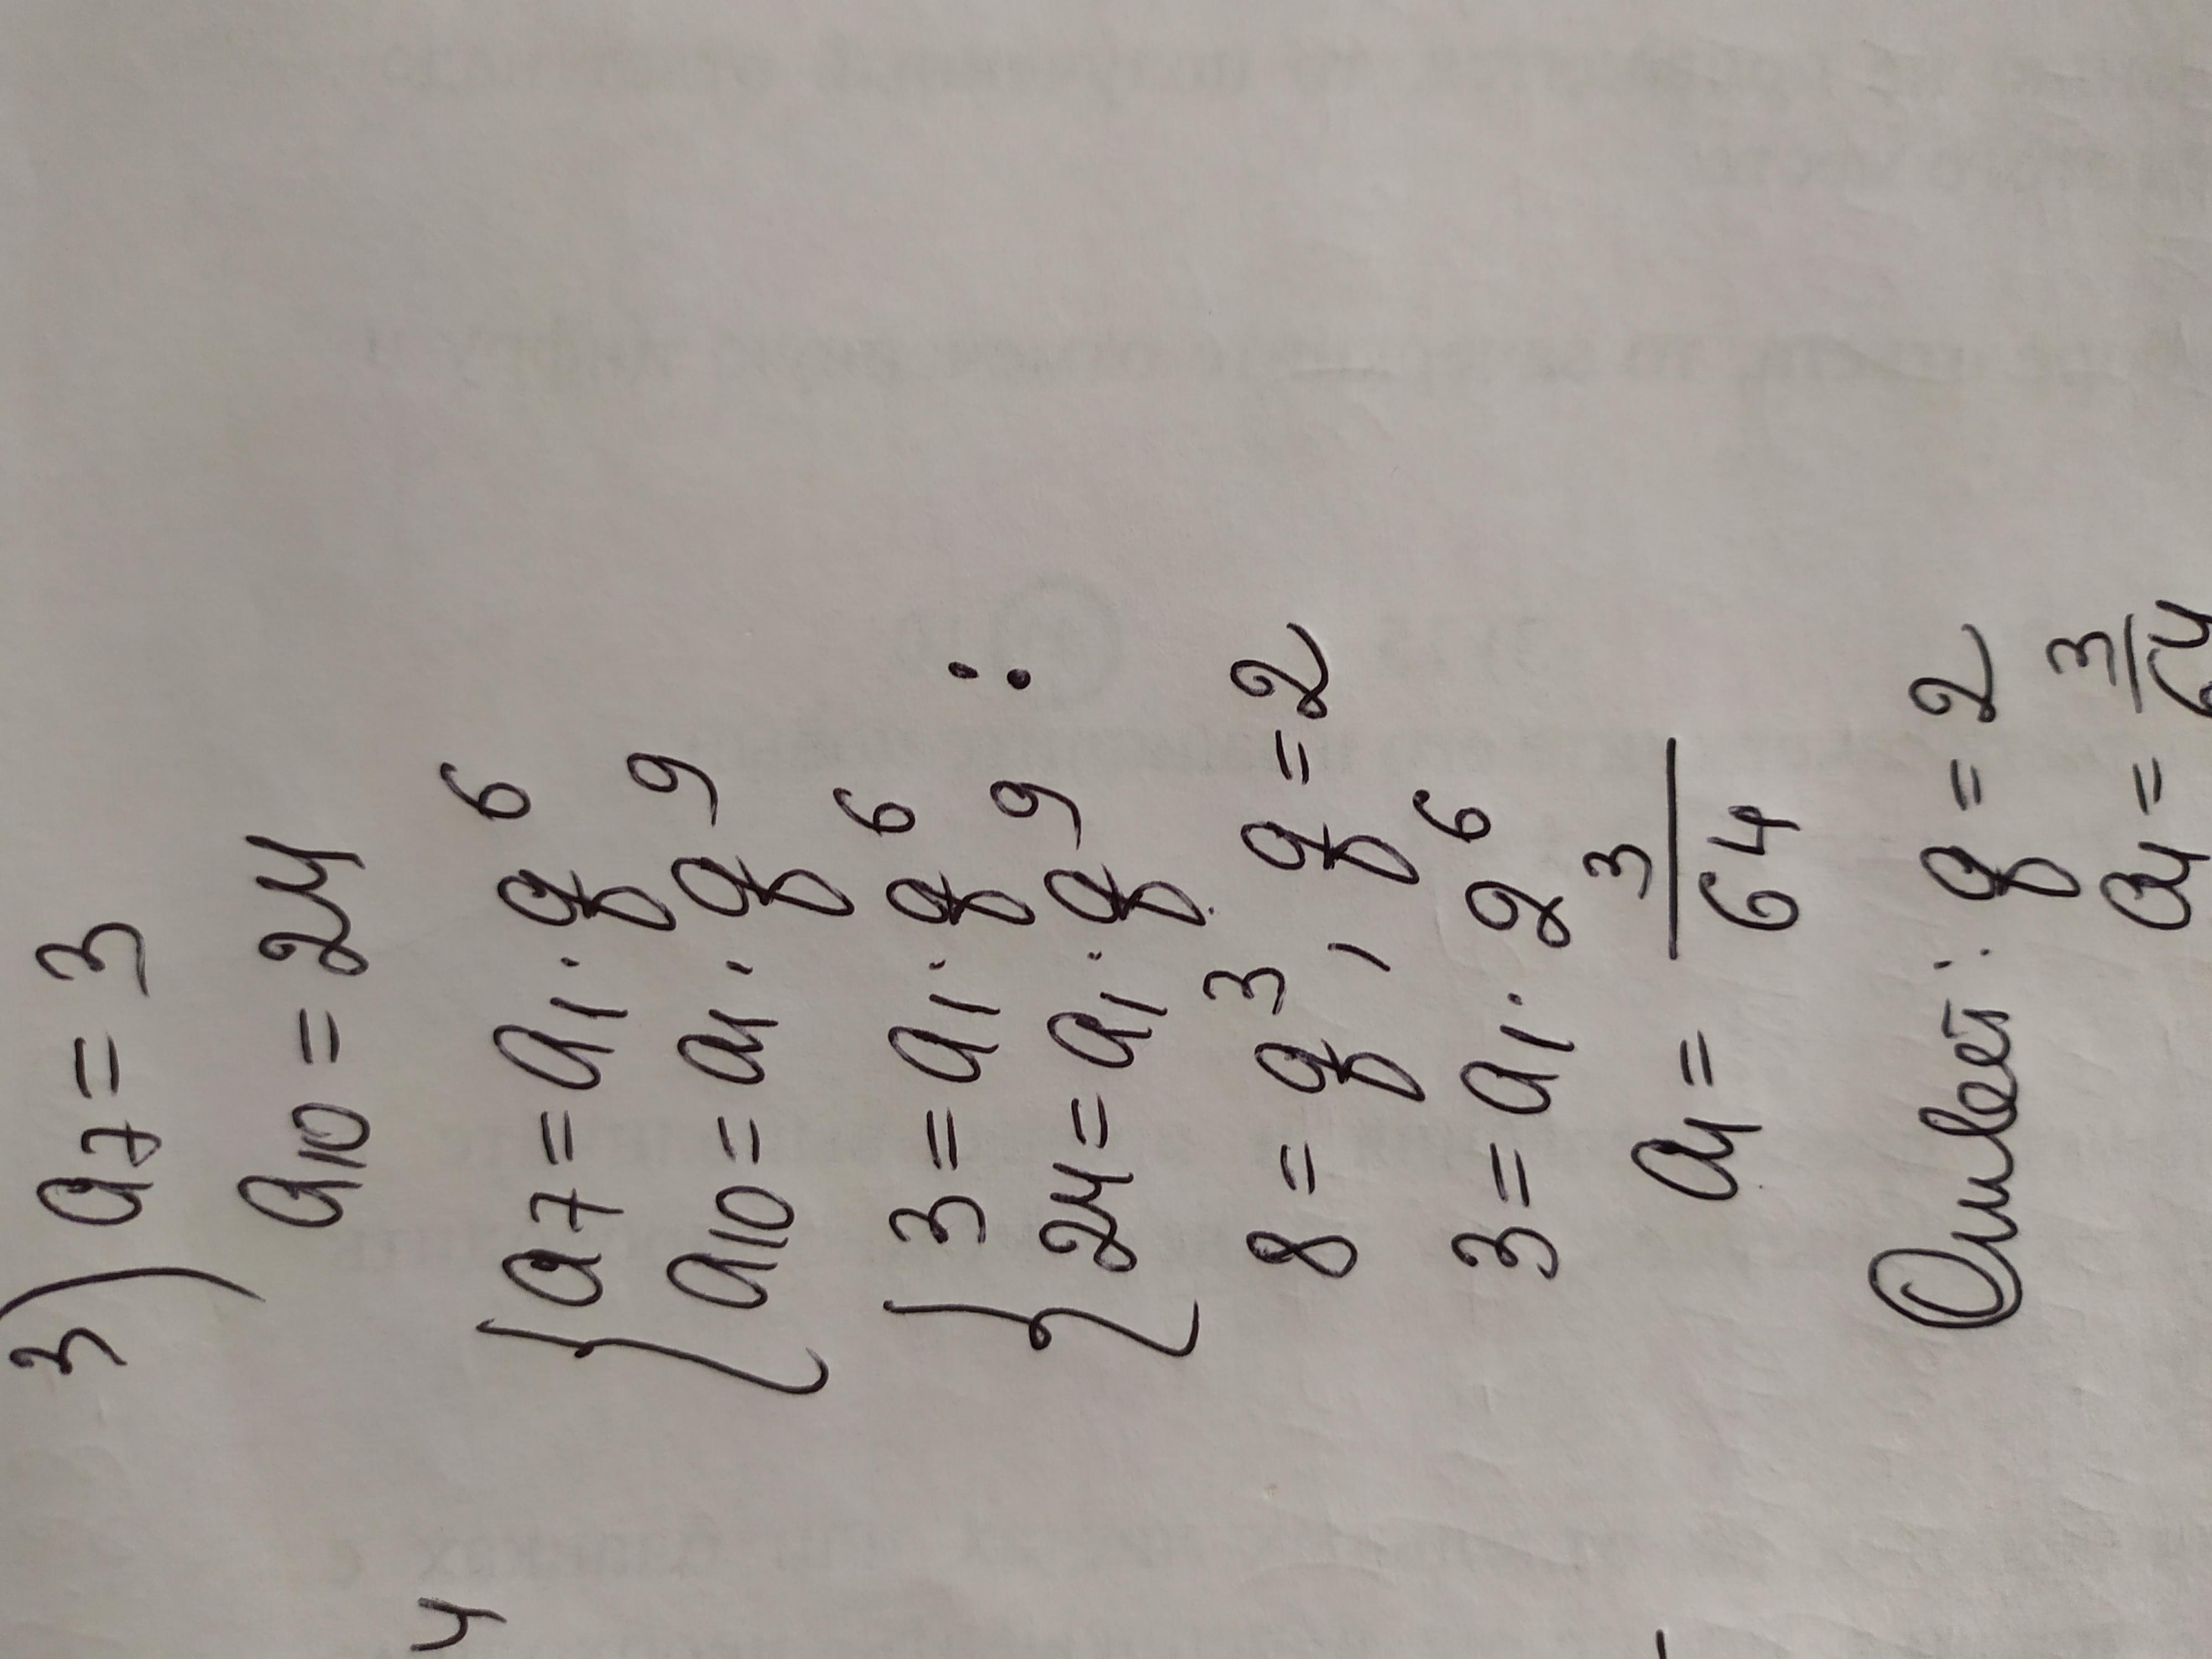 3) a7 = 3
a10 = 24
{ a7 = a1 · q^6
a10 = a1 · q^9
{ 3 = a1 · q^6
24 = a1 · q^9 :
8 = q^3, q = 2
3 = a1 · 2^6
a1 = 3/64
Ответ: q = 2
a1 = 3/64
4